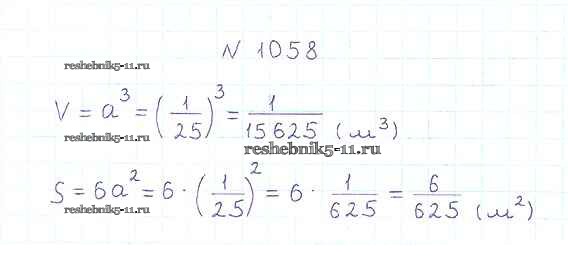 N 1058
reshebnik5-11.ru
V = a³ = (1/25)³ = 1/15625 (м³)
reshebnik5-11.ru
reshebnik5-11.ru
S = 6a² = 6 · (1/25)² = 6 · 1/625 = 6/625 (м²)
reshebnik5-11.ru